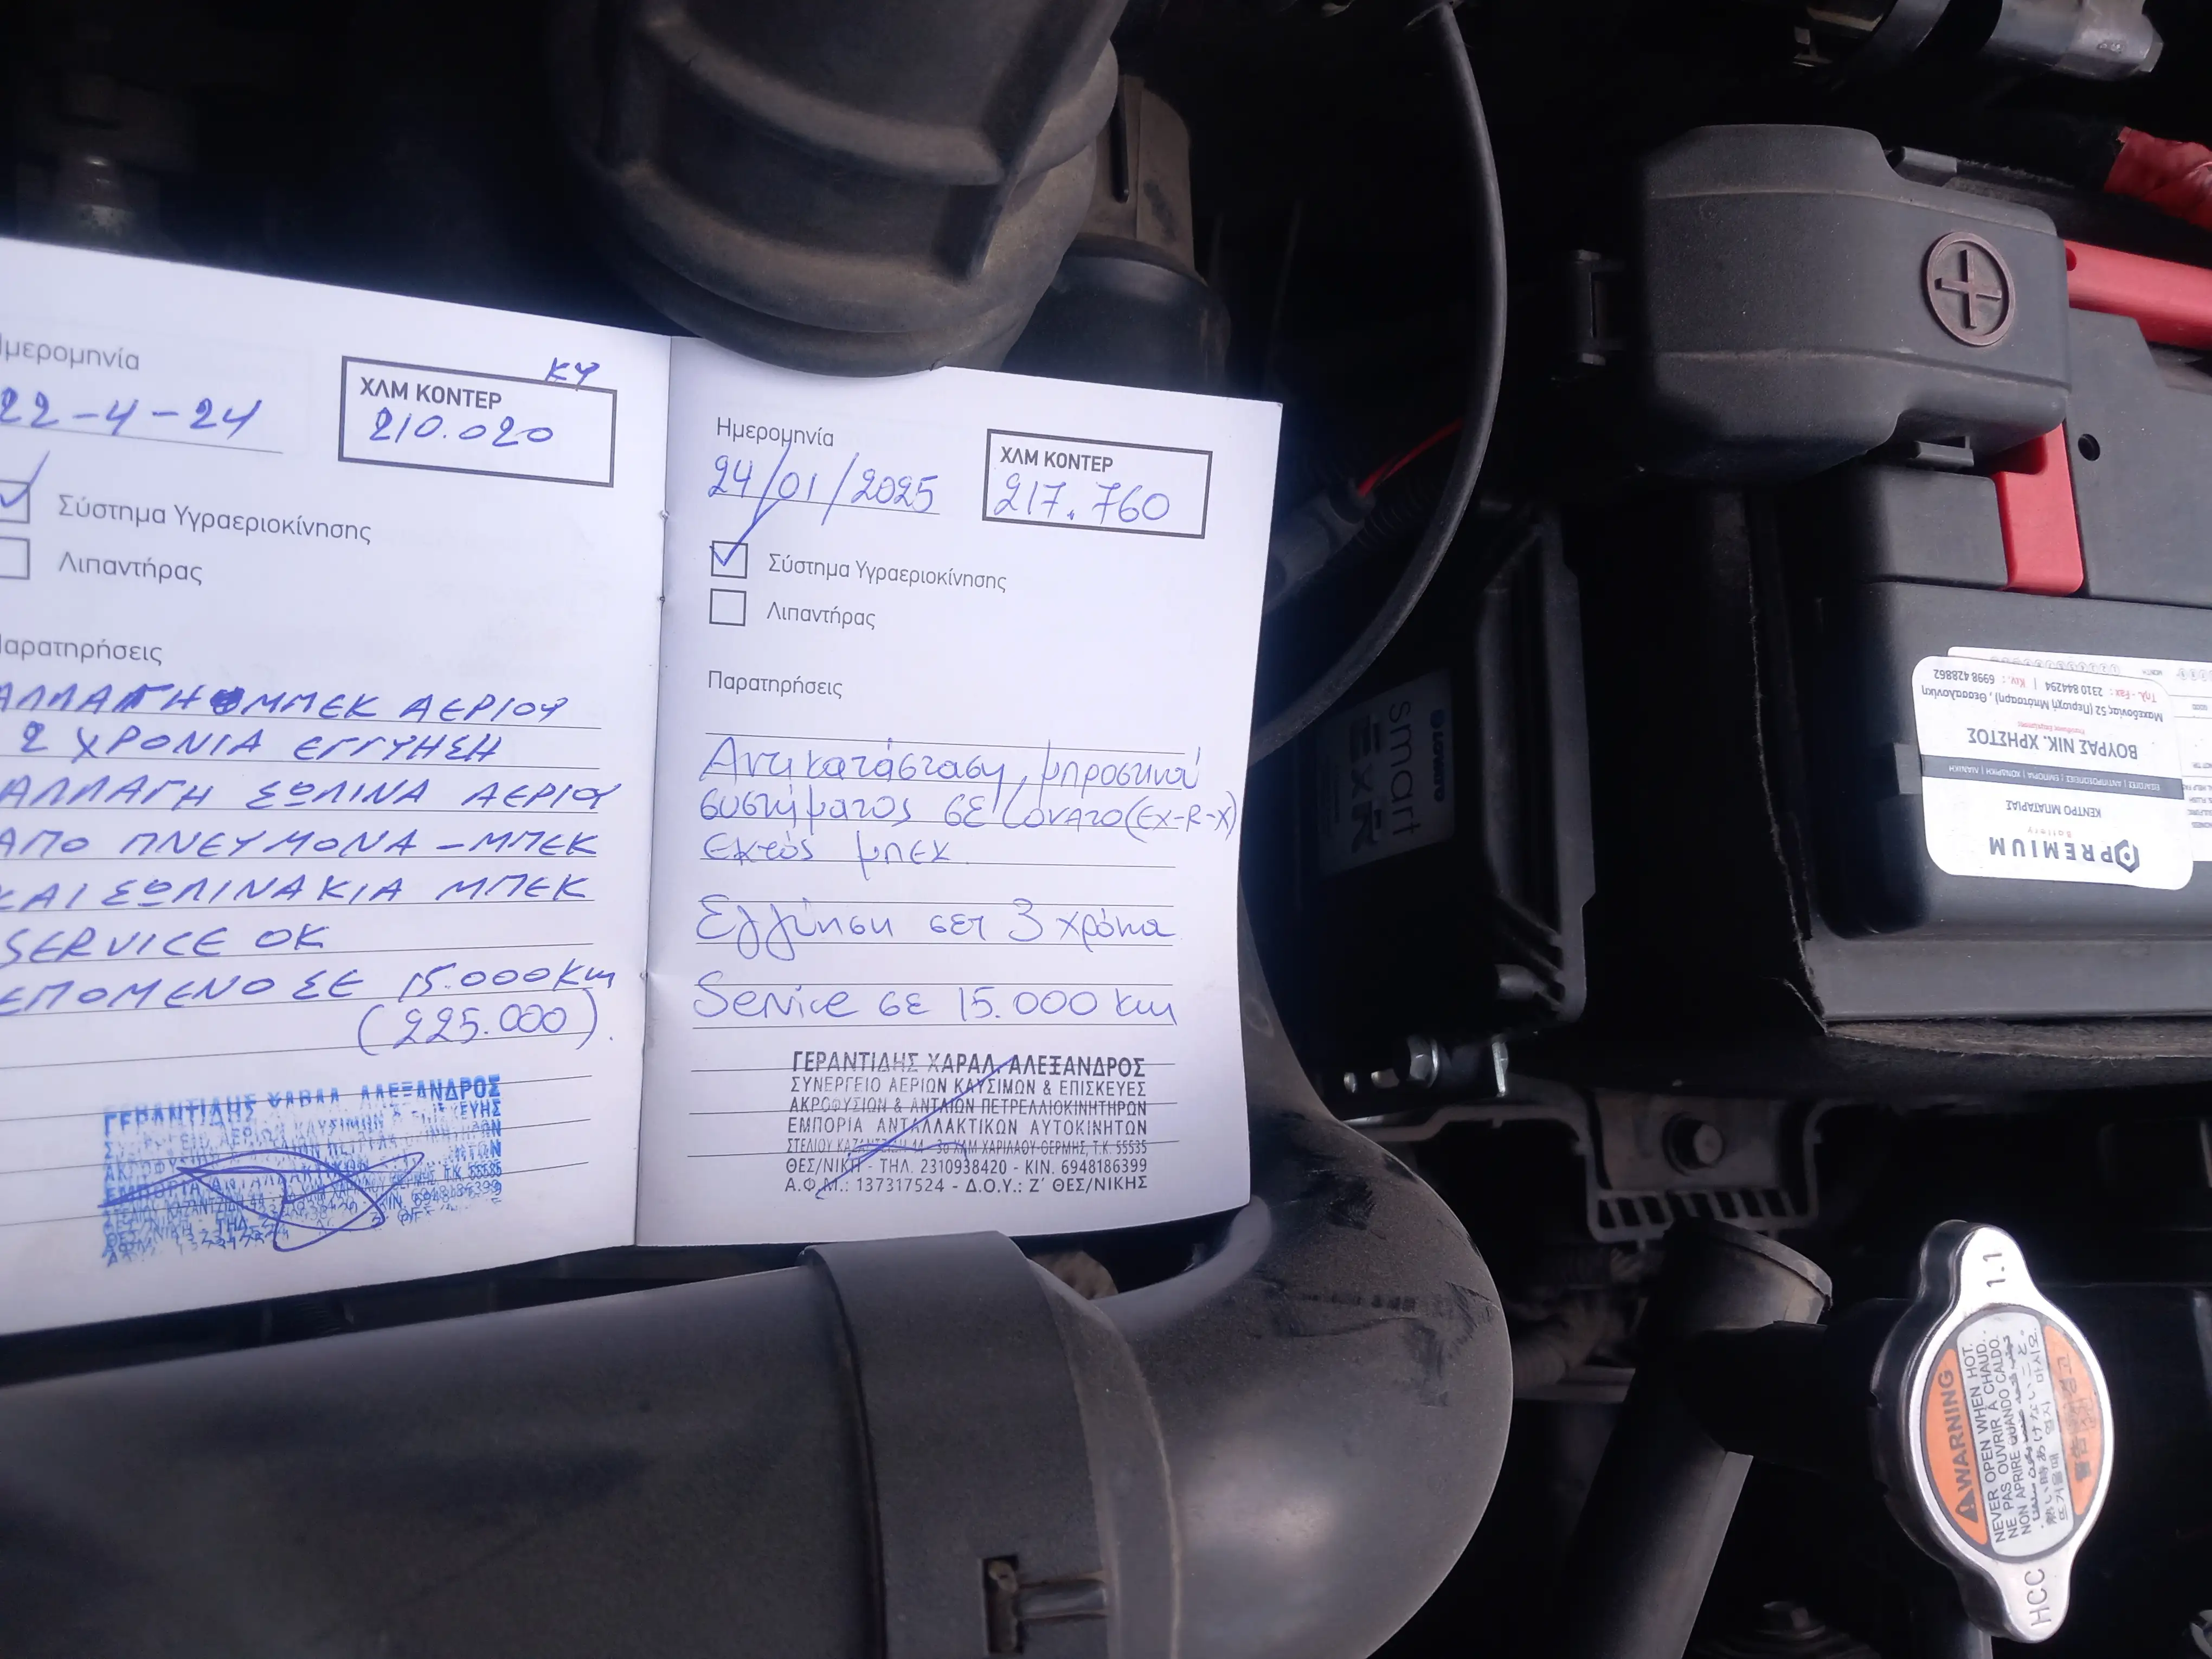 Ημερομηνία
22-4-24
ΚΥ
ΧΛΜ ΚΟΝΤΕΡ
210.020
Σύστημα Υγραεριοκίνησης
Λιπαντήρας
Παρατηρήσεις
ΑΛΛΑΓΗ ΜΠΕΚ ΑΕΡΙΟΥ
2 ΧΡΟΝΙΑ ΕΓΓΥΗΣΗ
ΑΛΛΑΓΗ ΣΩΛΙΝΑ ΑΕΡΙΟΥ
ΑΠΟ ΠΝΕΥΜΟΝΑ - ΜΠΕΚ
ΚΑΙ ΣΩΛΙΝΑΚΙΑ ΜΠΕΚ
SERVICE OK
ΕΠΟΜΕΝΟ ΣΕ 15.000 km
(225.000)
ΓΕΡΑΝΤΙΔΗΣ ΧΑΡΑΛ ΑΛΕΞΑΝΔΡΟΣ
Ημερομηνία
24/01/2025
ΧΛΜ ΚΟΝΤΕΡ
217.760
Σύστημα Υγραεριοκίνησης
Λιπαντήρας
Παρατηρήσεις
Αντικατάσταση μπροστινού
συστήματος σε Lovato (EX-R-X)
εκτός μπεκ
Εγγύηση σετ 3 χρόνια
Service σε 15.000 km
ΓΕΡΑΝΤΙΔΗΣ ΧΑΡΑΛ. ΑΛΕΞΑΝΔΡΟΣ
ΣΥΝΕΡΓΕΙΟ ΑΕΡΙΩΝ ΚΑΥΣΙΜΩΝ & ΕΠΙΣΚΕΥΕΣ
ΑΚΡΟΦΥΣΙΩΝ & ΑΝΤΛΙΩΝ ΠΕΤΡΕΛΑΙΟΚΙΝΗΤΗΡΩΝ
ΕΜΠΟΡΙΑ ΑΝΤΑΛΛΑΚΤΙΚΩΝ ΑΥΤΟΚΙΝΗΤΩΝ
ΣΤΕΛΙΟΥ ΚΑΖΑΝΤΖΙΔΗ 44 - 3ο ΧΛΜ ΧΑΡΙΛΑΟΥ-ΘΕΡΜΗΣ, Τ.Κ. 55535
ΘΕΣ/ΝΙΚΗ - ΤΗΛ. 2310938420 - ΚΙΝ. 6948186399
Α.Φ.Μ.: 137317524 - Δ.Ο.Υ.: Ζ΄ ΘΕΣ/ΝΙΚΗΣ
LOVATO
smart
ExR
PREMIUM
Battery
ΚΕΝΤΡΟ ΜΠΑΤΑΡΙΑΣ
ΕΙΣΑΓΩΓΕΣ | ΑΝΤΙΠΡΟΣΩΠΕΙΕΣ | ΕΜΠΟΡΙΑ | ΧΟΝΔΡΙΚΗ | ΛΙΑΝΙΚΗ
ΒΟΥΡΑΣ ΝΙΚ. ΧΡΗΣΤΟΣ
Μακεδονίας 52 (Περιοχή Μπότσαρη), Θεσσαλονίκη
Τηλ.-Fax: 2310 844294 | Κιν.: 6998 428862
MONTH
1.1
WARNING
NEVER OPEN WHEN HOT.
NE PAS OUVRIR A CHAUD.
NON APRIRE QUANDO CALDO.
HCC